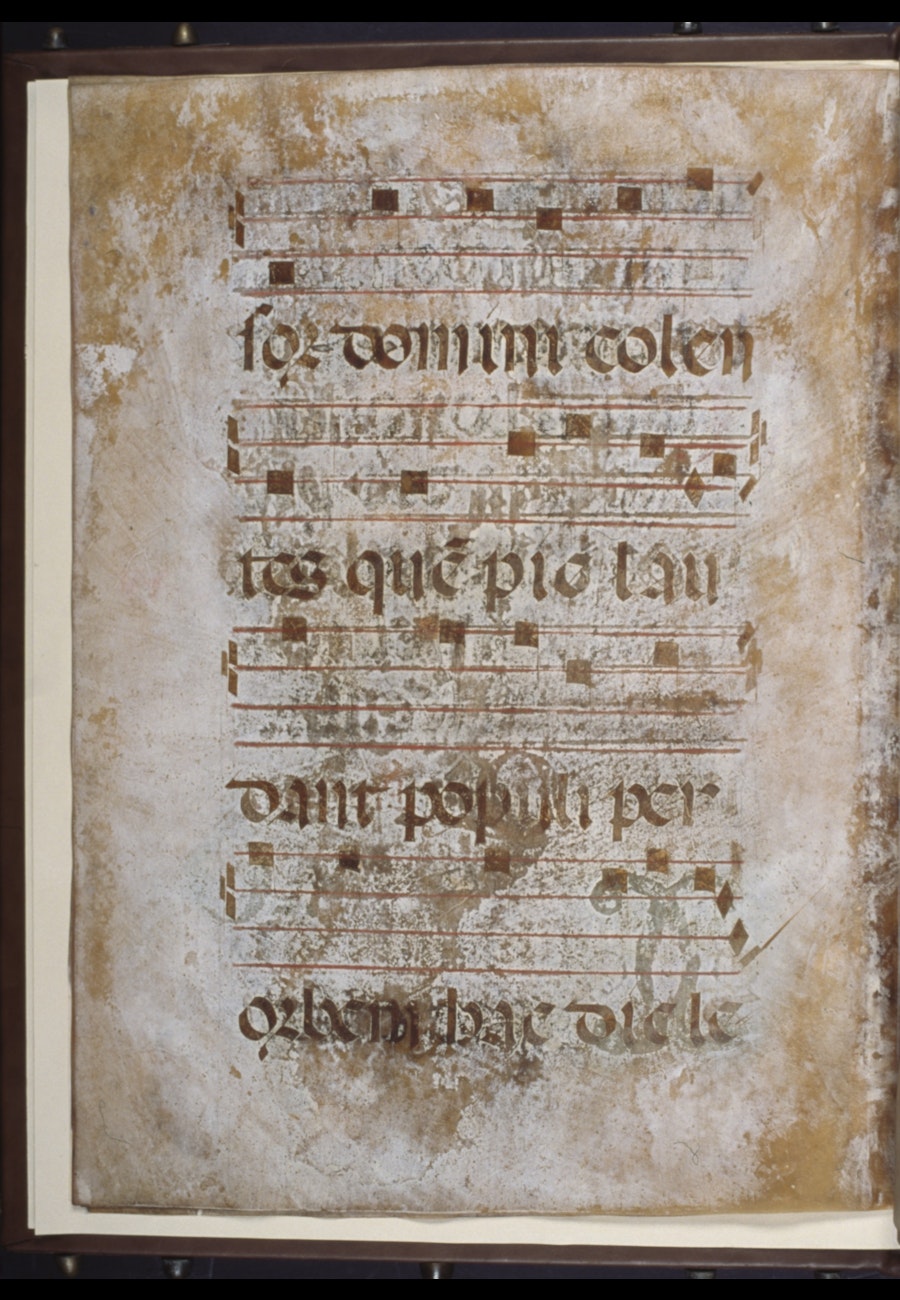 sor domini colen
tes quē pie lau
dant populi per
orbem hac die le